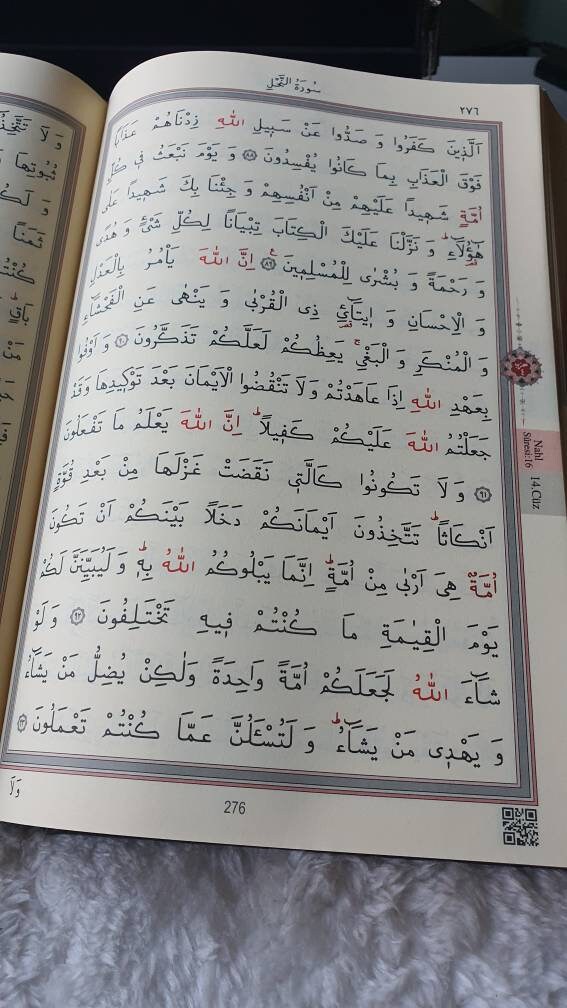 سُورَةُ النَّحْلِ
٢٧٦
اَلَّذٖينَ كَفَرُوا وَ صَدُّوا عَنْ سَبٖيلِ اللّٰهِ زِدْنَاهُمْ عَذَابًا
فَوْقَ الْعَذَابِ بِمَا كَانُوا يُفْسِدُونَ ﴿٨٨﴾ وَ يَوْمَ نَبْعَثُ فٖى كُلِّ
اُمَّةٍ شَهٖيدًا عَلَيْهِمْ مِنْ اَنْفُسِهِمْ وَ جِئْنَا بِكَ شَهٖيدًا عَلٰى
هٰٓؤُلَٓاءِؕ وَ نَزَّلْنَا عَلَيْكَ الْكِتَابَ تِبْيَانًا لِكُلِّ شَىْءٍ وَ هُدًى
وَ رَحْمَةً وَ بُشْرٰى لِلْمُسْلِمٖينَ ﴿٨٩﴾ اِنَّ اللّٰهَ يَاْمُرُ بِالْعَدْلِ
وَ الْاِحْسَانِ وَ اٖيتَٓائِ ذِى الْقُرْبٰى وَ يَنْهٰى عَنِ الْفَحْشَٓاءِ
وَ الْمُنْكَرِ وَ الْبَغْىِۚ يَعِظُكُمْ لَعَلَّكُمْ تَذَكَّرُونَ ﴿٩٠﴾ وَ اَوْفُوا
بِعَهْدِ اللّٰهِ اِذَا عَاهَدْتُمْ وَ لَا تَنْقُضُوا الْاَيْمَانَ بَعْدَ تَوْكٖيدِهَا وَ قَدْ
جَعَلْتُمُ اللّٰهَ عَلَيْكُمْ كَفٖيلًاؕ اِنَّ اللّٰهَ يَعْلَمُ مَا تَفْعَلُونَ
﴿٩١﴾ وَ لَا تَكُونُوا كَالَّتٖى نَقَضَتْ غَزْلَهَا مِنْ بَعْدِ قُوَّةٍ
اَنْكَاثًاؕ تَتَّخِذُونَ اَيْمَانَكُمْ دَخَلًا بَيْنَكُمْ اَنْ تَكُونَ
اُمَّةٌ هِىَ اَرْبٰى مِنْ اُمَّةٍؕ اِنَّمَا يَبْلُوكُمُ اللّٰهُ بِهٖؕ وَ لَيُبَيِّنَنَّ لَكُمْ
يَوْمَ الْقِيٰمَةِ مَا كُنْتُمْ فٖيهِ تَخْتَلِفُونَ ﴿٩٢﴾ وَ لَوْ
شَٓاءَ اللّٰهُ لَجَعَلَكُمْ اُمَّةً وَاحِدَةً وَلٰكِنْ يُضِلُّ مَنْ يَشَٓاءُ
وَ يَهْدٖى مَنْ يَشَٓاءُؕ وَ لَتُسْئَلُنَّ عَمَّا كُنْتُمْ تَعْمَلُونَ ﴿٩٣﴾
276
Nahl
Sûresi:16
14.Cüz
وَلَا